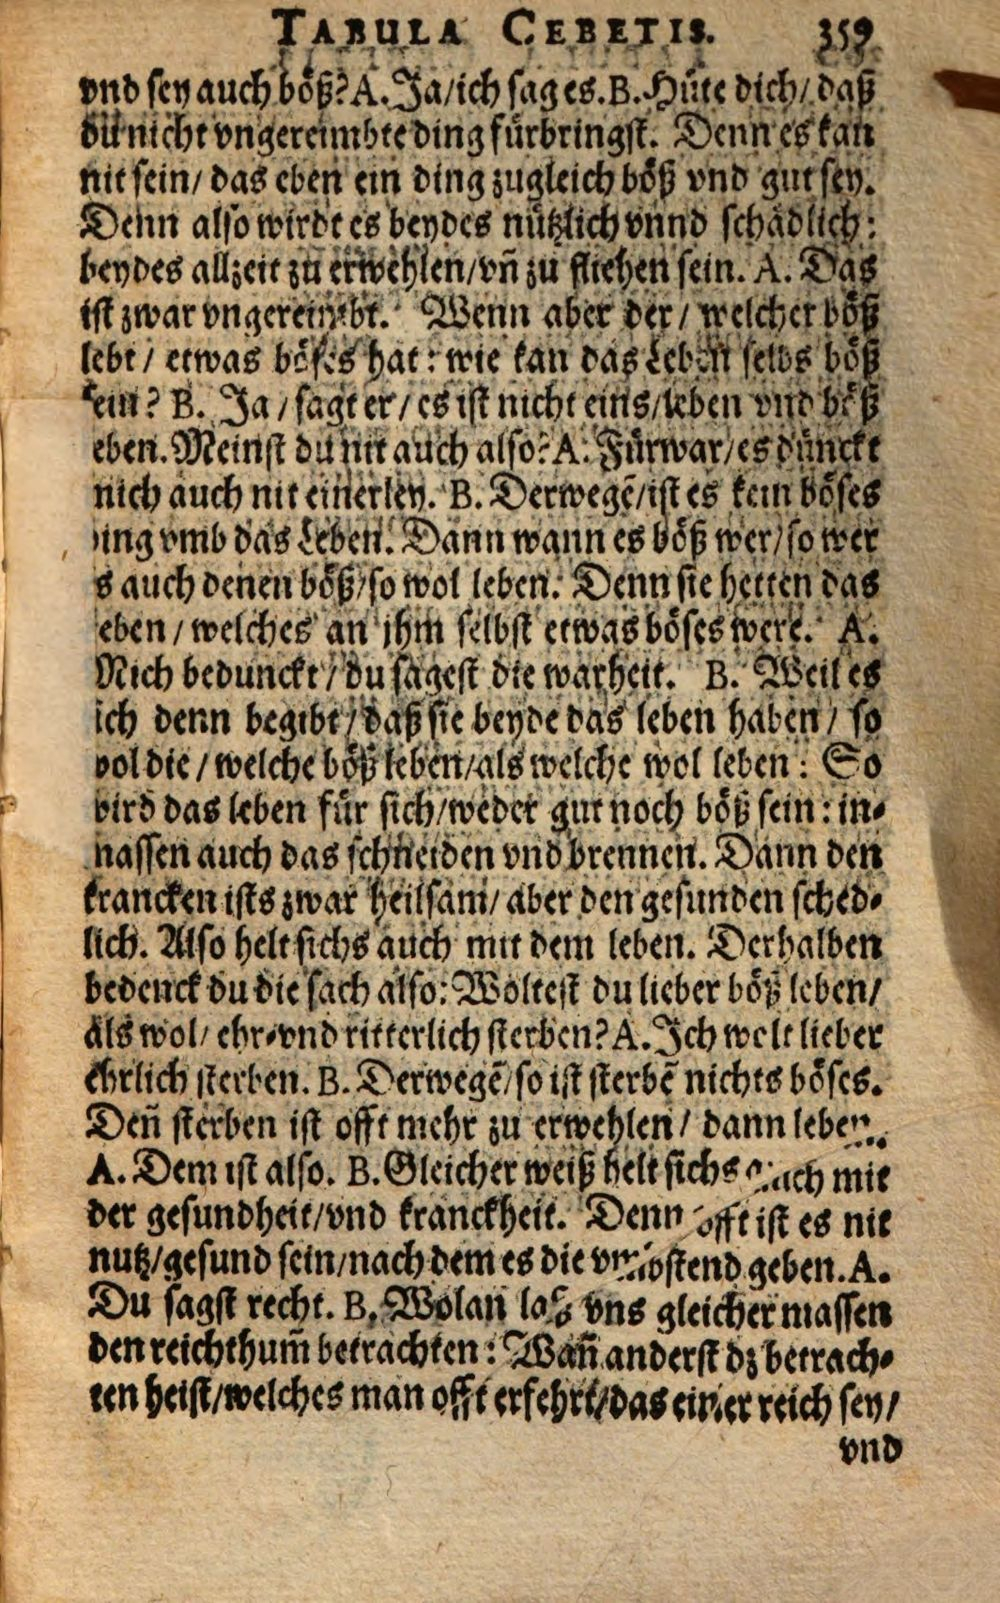 TABULA CEBETIS. 359
vnd sey auch böß? A. Ja/ich sag es. B. Hüte dich/ daß
du nicht vngereimbte ding fürbringst. Denn es kan
nit sein/ das eben ein ding zugleich böß vnd gut sey.
Denn also wirdt es beydes nützlich vnnd schädlich:
beydes allzeit zu erwehlen/vn̄ zu fliehen sein. A. Das
ist zwar vngereimbt. Wenn aber der / welcher böß
lebt / etwas böses hat: wie kan das Leben selbs böß
sein? B. Ja / sagt er / es ist nicht eins/leben vnd böß
eben. Meinst du nit auch also? A. Fürwar/es dünckt
nich auch nit einerley. B. Derwegē/ist es kein böses
ing vmb das Leben. Dann wann es böß wer/so wer
s auch denen böß/so wol leben. Denn sie hetten das
eben / welches an jhm selbst etwas böses were. A.
Mich bedunckt / du sagest die warheit. B. Weil es
ich denn begibt / daß sie beyde das leben haben / so
vol die / welche böß leben/als welche wol leben: So
vird das leben für sich/weder gut noch böß sein: in-
nassen auch das schneiden vnd brennen. Dann den
krancken ists zwar heilsam/ aber den gesunden sched-
lich. Also helt sichs auch mit dem leben. Derhalben
bedenck du die sach also: Woltest du lieber böß leben/
als wol/ ehr-vnd ritterlich sterben? A. Ich wolt lieber
ehrlich sterben. B. Derwegē/so ist sterbē nichts böses.
Den̄ sterben ist offt mehr zu erwehlen / dann leben.
A. Dem ist also. B. Gleicher weiß helt sichs auch mit
der gesundheit/vnd kranckheit. Denn offt ist es nit
nutz/gesund sein/nach dem es die vmbstend geben. A.
Du sagst recht. B. Wolan las vns gleicher massen
den reichthum̄ betrachten: Wan̄ anderst dz betrach-
ten heist/welches man offt erfehrt/das einer reich sey/
vnd